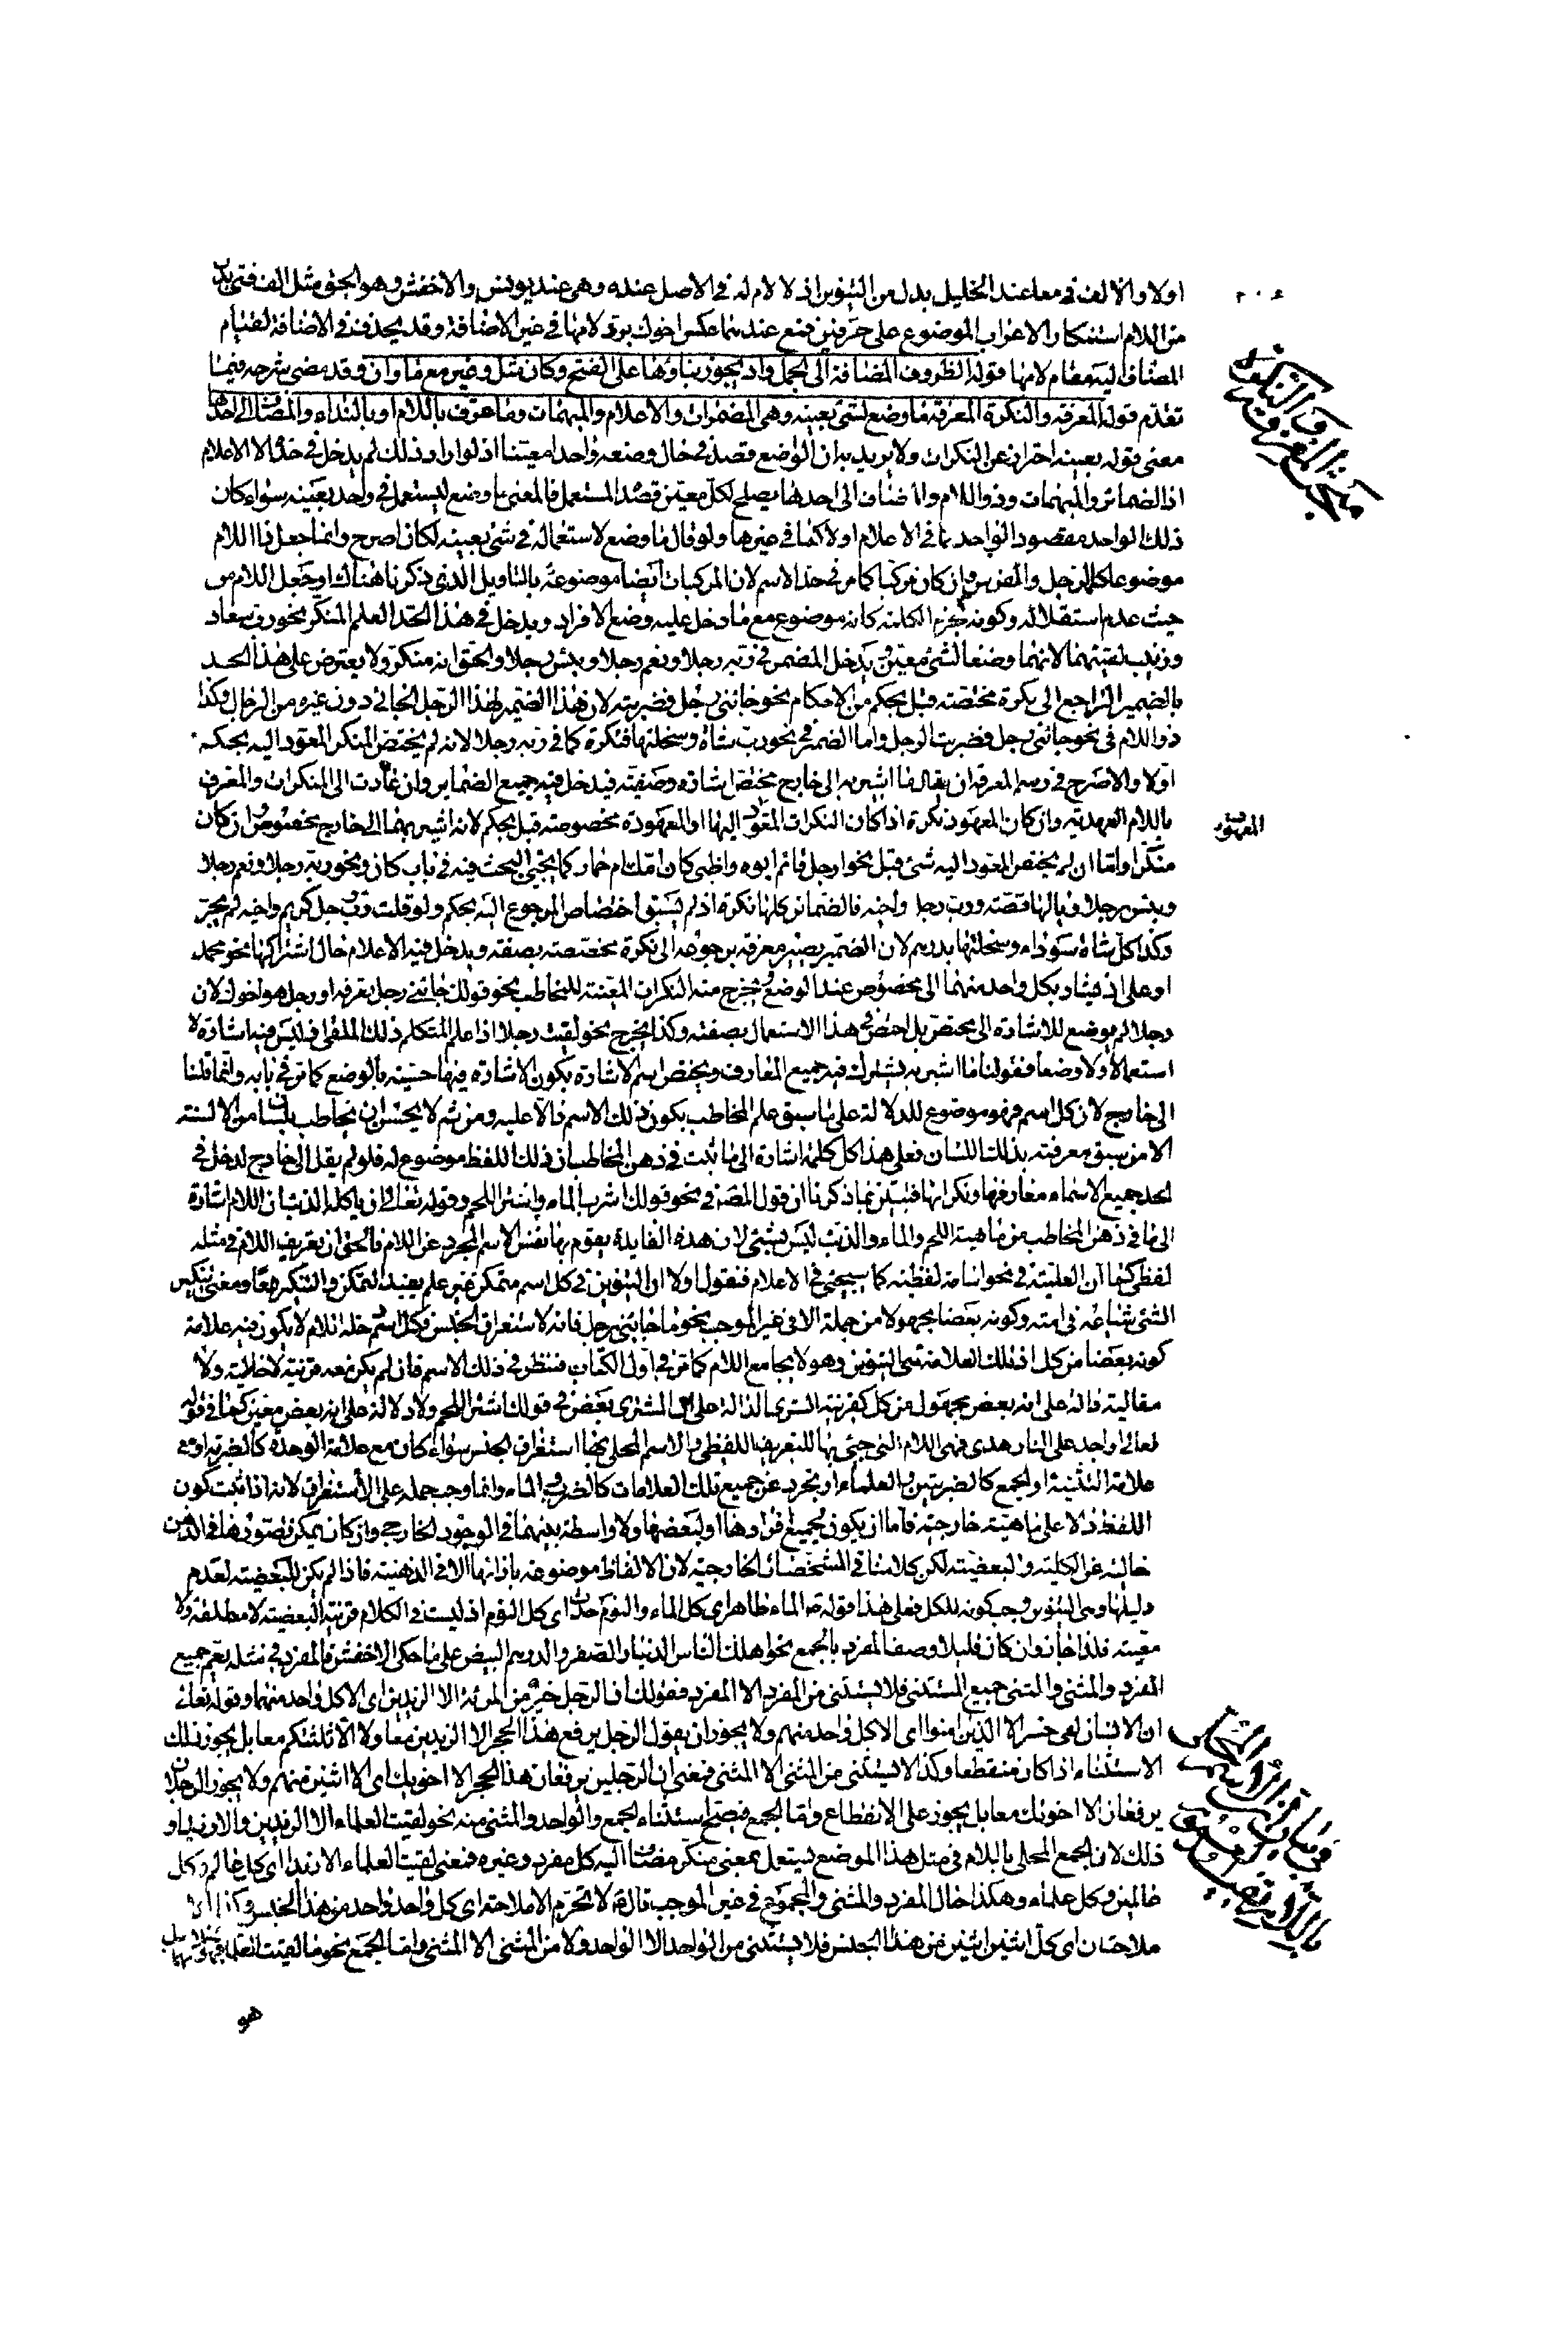 اولا والالف في معا عند الخليل بدل من التنوين اذ لا لام له في الاصل عنده وهي عند يونس والاخفش وهو الحق مثل الف فتى بدل
من اللام استنكارا لاعراب الموضوع على حرفين فمع عندهما عكس اخوك برد لامها في غير الاضافة وقد يحذف في الاضافة لقيام
المضاف اليه مقام لامها قوله الظروف المضافة الى الجمل واذ يجوز بناؤها على الفتح وكان مثل وغير مع ما وان وقد مضى شرحه فيما
تقدم قوله المعرفة والنكرة المعرفة ما وضع لشئ بعينه وهي المضمرات والاعلام والمبهمات وما عرف باللام او بالنداء والمضاف الى احدها
معنى قوله بعينه احتراز عن النكرات ولا يريد به ان الواضع قصد في حال وضعه واحدا معينا اذ لو اراد ذلك لم يدخل في حده الا الاعلام
اذ الضمائر والمبهمات وذو اللام والمضاف الى احدها يصلح لكل معين قصده المستعمل فالمعنى ما وضع ليستعمل في واحد بعينه سواء كان
ذلك الواحد مقصود الواحد كما في الاعلام اولا كما في غيرها ولو قال ما وضع لاستعماله في شئ بعينه لكان اصرح وانما جعل ذا اللام
موضوعا كالرجل والفرس وان كان مركبا كما مر في حد الاسم لان المركبات ايضا موضوعة بالتاويل الذي ذكرنا هناك او جعل اللام من
حيث عدم استقلاله وكونه كجزء الكلمة كانه موضوع مع ما دخل عليه وضع الافراد ويدخل في هذا الحد العلم المنكر نحو رب سعاد
وزينب لقيتهما لانهما وضعا لشئ معين ويدخل المضمر في ربه رجلا ونعم رجلا وبئس رجلا والحق انه منكر ولا يعترض على هذا الحد
بالضمير الراجع الى نكرة مختصة قبل بحكم من الاحكام نحو جاءني رجل فضربته لان هذا الضمير لهذا الرجل الجائي دون غيره من الرجال وكذا
ذو اللام في نحو جاءني رجل فضربت الرجل واما الضمير في نحو رب شاة وسخلتها فنكرة كما في ربه رجلا لانه لم يختص المنكر المعود اليه بحكم
اولا والاصرح في رسم المعرفة ان يقال ما اشير به الى خارج مختص اشارة وضعية فيدخل فيه جميع الضمائر وان عادت الى المنكرات والمعرف
باللام العهدية وان كان المعهود نكرة اذا كان النكرات المعود اليها او المعهودة مخصوصة قبل بحكم لانه اشير بهما الى خارج مخصوص وان كان
منكرا واما ان لم يختص المعود اليه شئ قبل نحو ارجل قائم ابوه واظبي كان امك ام حمار كما يجئ البحث فيه في باب كان ونحو ربه رجلا ونعم رجلا
وبئس رجلا ويا لها قصة ورب رجل واخيه فالضمائر كلها نكرة اذ لم يسبق اختصاص المرجوع اليه بحكم ولو قلت رب رجل كريم واخيه لم يجز
وكذا كل شاة سوداء وسخلتها بدرهم لان الضمير يصير معرفة برجوعه الى نكرة مختصة بصفة ويدخل فيه الاعلام حال اشتراكها نحو محمد
او علي اذ يشار بكل واحد منهما الى مخصوص عند الوضع ويخرج منه النكرات المعينة للمخاطب نحو قولك جاءني رجل تعرفه او رجل هو اخوك لان
رجلا لم يوضع للاشارة الى مختص بل اختص في هذا الاستعمال بصفته وكذا يخرج نحو لقيت رجلا اذا علم المتكلم ذلك الملقي اذ ليس فيه اشارة لا
استعمالا ولا وضعا فقولنا ما اشير به يشترك فيه جميع المعارف ويختص اسم الاشارة بكون الاشارة فيها حسية بالوضع كما مر في بابه وانما قلنا
الى خارج لان كل اسم فهو موضوع للدلالة على ما سبق علم المخاطب بكون ذلك الاسم دالا عليه ومن ثم لا يحسن ان يخاطب بلسان من الالسنة
الا من سبق معرفته بذلك اللسان فعلى هذا كل كلمة اشارة الى ما ثبت في ذهن المخاطب ان ذلك اللفظ موضوع له فلو لم يقل الى خارج لدخل في
الحد جميع الاسماء معارفها ونكراتها فتبين بما ذكرنا ان قول المص في نحو قولك اشرب الماء واشتر اللحم وقوله تعالى ان ياكله الذئب ان اللام اشارة
الى ما في ذهن المخاطب من ماهية اللحم والماء والذئب ليس بشئ لان هذه الفايدة يقوم بها نفس الاسم المجرد عن اللام فالحق ان تعريف اللام في مثله
لفظي كما ان العلمية في نحو اسامة لفظية كما سيجئ في الاعلام فنقول اولا ان التنوين في كل اسم متمكن غير علم يفيد التمكن والتنكير معا ومعنى تنكير
الشئ شياعه في امته وكونه بعضا مجهولا من جملة الا في غير الموجب نحو ما جاءني رجل فانه لاستغراق الجنس فكل اسم دخله اللام لا يكون فيه علامة
كونه بعضا من كل اذ تلك العلامة هي التنوين وهو لا يجامع اللام كما مر في اول الكتاب فننظر في ذلك الاسم فان لم يكن معه قرينة لا حالية ولا
مقالية دالة على انه بعض مجهول من كل كقرينة الشرى الدالة على ان المشترى بعض في قولك اشتر اللحم ولا دلالة على انه بعض معين كما في قوله
تعالى او اجد على النار هدى فهي اللام التي جئ بها للتعريف اللفظي والاسم المحلى بها لاستغراق الجنس سواء كان مع علامة الوحدة كالضربة او مع
علامة التثنية او الجمع كالضربتين والعلماء او تجرد عن جميع تلك العلامات كالضرب والماء وانما وجب حمله على الاستغراق لانه اذا ثبت كون
اللفظ دالا على ماهية خارجية فاما ان يكون لجميع افرادها او لبعضها ولا واسطة بينهما في الوجود الخارجي وان كان يمكن تصورها في الذهن
خالية عن الكلية والبعضية لكن كلامنا في المشخصات الخارجية لان الالفاظ موضوعة بازائها لا الذهنية فاذا لم يكن للبعضية لعدم
دليلها وهي التنوين وجب كونه للكل فعلى هذا قوله ص الماء طاهر اي كل الماء والنوم حدث اي كل النوم اذ ليست في الكلام قرينة البعضية لا مطلقة ولا
معينة فلذا جاز وان كان قليلا وصف المفرد بالجمع نحو اهلك الناس الدنيار الصفر والدرهم البيض على ما حكى الاخفش فالمفرد في مثله يعم جميع
المفرد والمثنى والمثنى جميع المستثنى فلا يستثنى من المفرد الا المفرد فقولك ان الرجل خير من المرءة الا الزيدين اي الا كل واحد منهما وقوله تعالى
ان الانسان لفي خسر الا الذين امنوا اي الا كل واحد منهم ولا يجوز ان يقول الرجل يرفع هذا الحجر الا الزيدين معا ولا الا ثلثتكم معا بل يجوز ذلك
الاستثناء اذا كان منقطعا وكذا لا يستثنى من المثنى الا المثنى فمعنى ان الرجلين يرفعان هذا الحجر الا اخويك اي الا اثنين منهم ولا يجوز الرجلان
يرفعان الا اخوتك معا بل يجوز على الانقطاع واما الجمع فيصح استثناء الجمع والواحد والمثنى منه نحو لقيت العلماء الا الزيدين والا زيدا و
ذلك لان الجمع المحلى باللام في مثل هذا الموضع يستعمل بمعنى منكر مضافا اليه كل مفرد وغيره فمعنى لقيت العلماء الا زيدا اي كل عالم وكل
عالمين وكل علماء وهكذا حال المفرد والمثنى والمجموع في غير الموجب قال ص لا تحرم الاملاجة اي كل واحد واحد من هذا الجنس وكذا الا
ملاجتان اي كل اثنين اثنين من هذا الجنس فلا يستثنى من الواحد الا الواحد ولا من المثنى الا المثنى واما الجمع نحو ما لقيت العلماء
هو
مبحث المعرفة والنكرة
المعهود